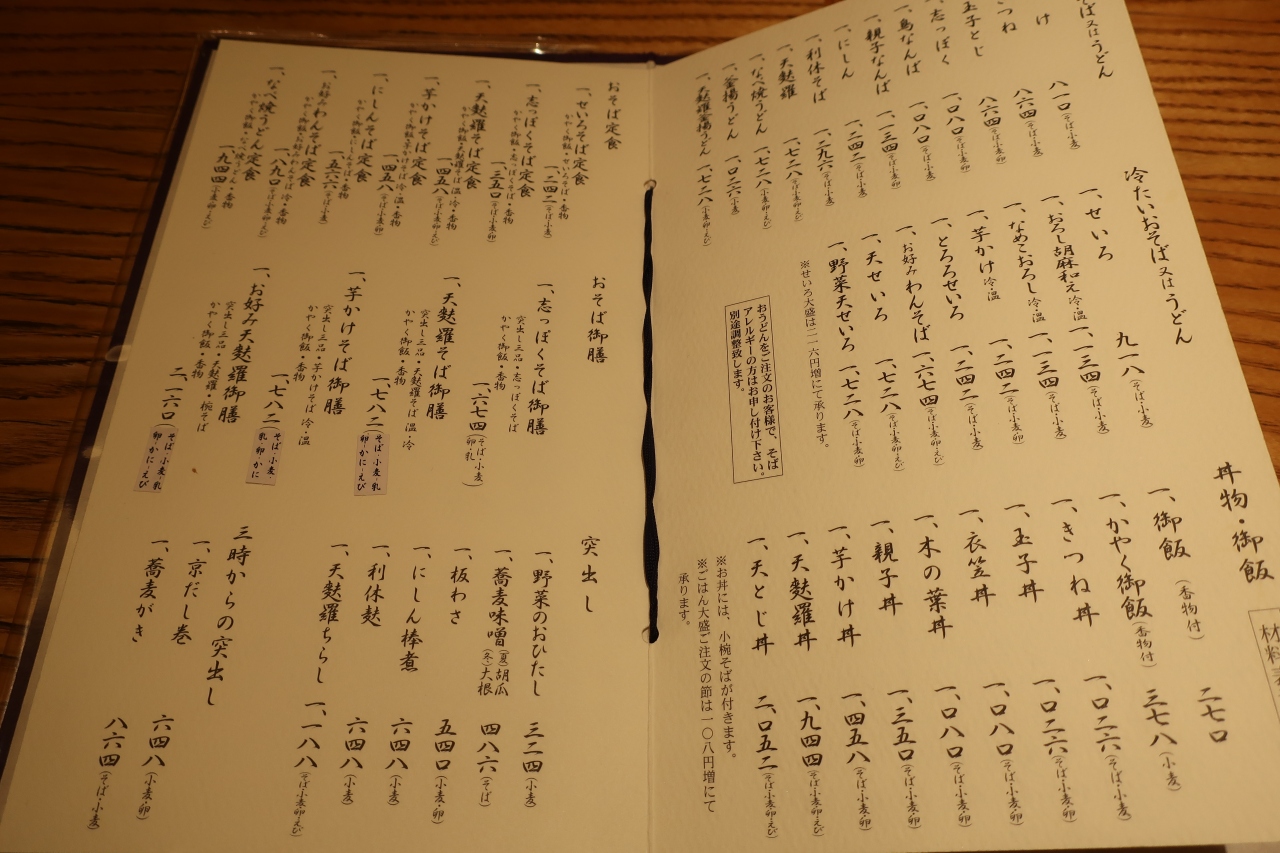 そば又はうどん
け 八一〇(そば・小麦)
つね 八六四(そば・小麦)
玉子とじ 八六四(そば・小麦・卵)
志っぽく 一、〇八〇(そば・小麦・卵)
鳥なんば 一、〇八〇(そば・小麦)
一、親子なんば 一、一三四(そば・小麦・卵)
一、にしん 一、二四二(そば・小麦)
一、利休そば 一、二九六(そば・小麦)
一、天麩羅 一、七二八(そば・小麦・卵・えび)
一、なべ焼うどん 一、七二八(小麦・卵・えび)
一、釜揚うどん 一、〇二六(小麦)
一、天麩羅釜揚うどん 一、七二八(小麦・卵・えび)
冷たいおそば又はうどん
一、せいろ 九一八(そば・小麦)
一、おろし胡麻和え 冷・温 一、一三四(そば・小麦)
一、なめこおろし 冷・温 一、一三四(そば・小麦)
一、芋かけ 冷・温 一、二四二(そば・小麦・卵)
一、とろろせいろ 一、二四二(そば・小麦)
一、お好みわんそば 一、六七四(そば・小麦・卵・えび)
一、天せいろ 一、七二八(そば・小麦・卵・えび)
一、野菜天せいろ 一、七二八(そば・小麦・卵)
※せいろ大盛は二一六円増にて承ります。
おうどんをご注文のお客様で、そば
アレルギーの方はお申し付け下さい。
別途調整致します。
丼物・御飯
一、御飯 (香物付) 二七〇
一、かやく御飯(香物付) 三七八(小麦)
一、きつね丼 一、〇二六(そば・小麦・卵)
一、玉子丼 一、〇二六(そば・小麦・卵)
一、衣笠丼 一、〇八〇(そば・小麦・卵)
一、木の葉丼 一、〇八〇(そば・小麦・卵)
一、親子丼 一、三五〇(そば・小麦・卵)
一、芋かけ丼 一、四五八(そば・小麦・卵)
一、天麩羅丼 一、九四四(そば・小麦・卵・えび)
一、天とじ丼 二、〇五二(そば・小麦・卵・えび)
※お丼には、小椀そばが付きます。
※ごはん大盛ご注文の節は一〇八円増にて
承ります。
材料
おそば定食
一、せいろそば定食
かやく御飯・せいろそば・香物
一、二四二(そば・小麦)
一、志っぽくそば定食
かやく御飯・志っぽくそば・香物
一、三五〇(そば・小麦・卵)
一、天麩羅そば定食
かやく御飯・天麩羅そば 温・冷・香物
一、四五八(そば・小麦・卵・えび)
一、芋かけそば定食
かやく御飯・芋かけそば 冷・温・香物
一、四五八(そば・小麦・卵)
一、にしんそば定食
かやく御飯・にしんそば・香物
一、五六六(そば・小麦)
一、お好みわんそば定食
かやく御飯・お好みわんそば 冷・香物
一、八九〇(そば・小麦・卵・えび)
一、なべ焼うどん定食
かやく御飯・なべ焼うどん・香物
一、九四四(小麦・卵・えび)
おそば御膳
一、志っぽくそば御膳
突出し三品・志っぽくそば
かやく御飯・香物
一、六七四(そば・小麦・卵・乳)
一、天麩羅そば御膳
突出し三品・天麩羅そば 温・冷
かやく御飯・香物
一、七八二(そば・小麦・乳・卵・かに・えび)
一、芋かけそば御膳
突出し三品・芋かけそば 冷・温
かやく御飯・香物
一、七八二(そば・小麦・乳・卵・かに)
一、お好み天麩羅御膳
突出し三品・天麩羅・椀そば
かやく御飯・香物
二、一六〇(そば・小麦・乳・卵・かに・えび)
突出し
一、野菜のおひたし 三二四(小麦)
一、蕎麦味噌(夏)胡瓜(冬)大根 四八六(そば)
一、板わさ 五四〇(小麦・卵)
一、にしん棒煮 六四八(小麦)
一、利休麩 六四八(小麦)
一、天麩羅ちらし 一、一八八(そば・小麦・卵・えび)
三時からの突出し
一、京だし巻 六四八(小麦・卵)
一、蕎麦がき 八六四(そば・小麦)